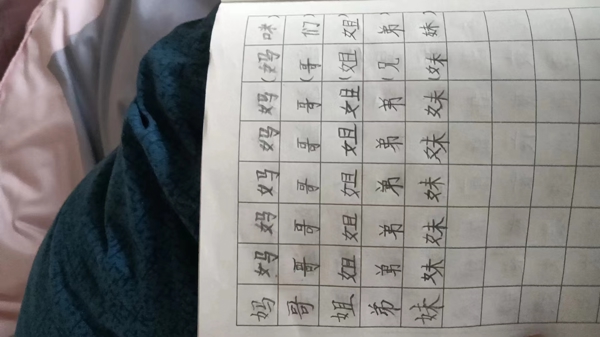 妈妈妈妈妈妈(妈咪)
哥哥哥哥哥哥(哥们)
姐姐姐姐姐姐(姐姐)
弟弟弟弟弟弟(兄弟)
妹妹妹妹妹妹(妹妹)